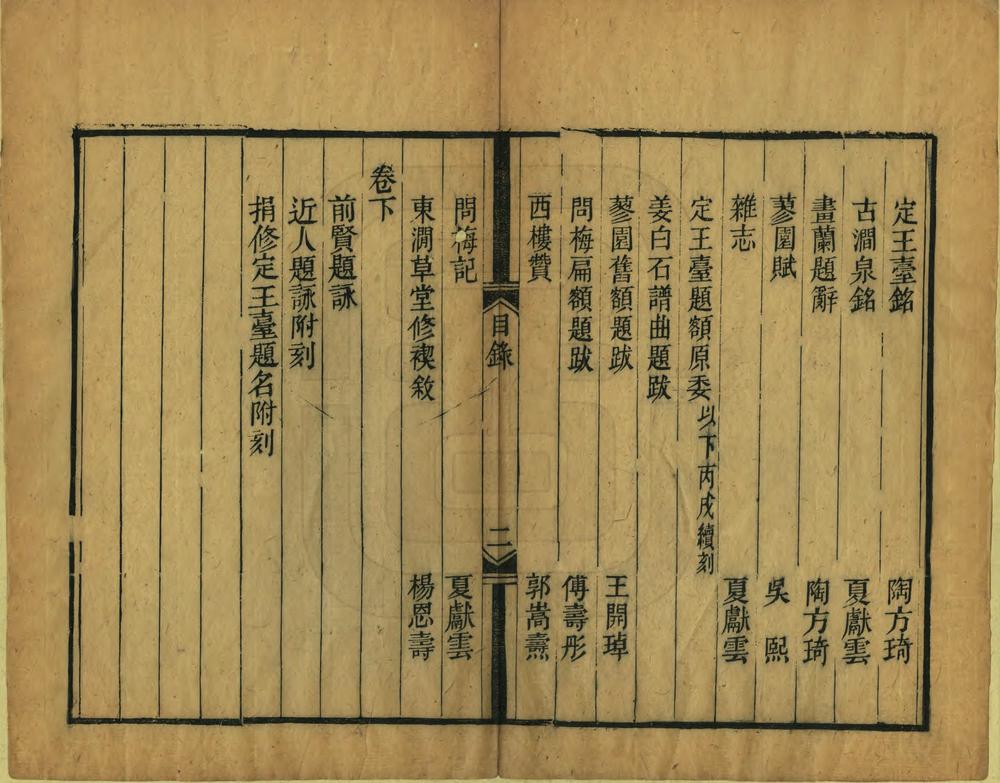 定王臺銘 陶方琦
古澗泉銘 夏獻雲
畫蘭題辭 陶方琦
蓼園賦 吳熙
雜志 夏獻雲
定王臺題額原委 以下丙戌續刻
姜白石譜曲題跋
蓼園舊額題跋 王開琸
問梅扁額題跋 傅壽彤
西樓贊 郭嵩燾
目錄 二
問梅記 夏獻雲
東澗草堂修禊敘 楊恩壽
卷下
前賢題詠
近人題詠附刻
捐修定王臺題名附刻